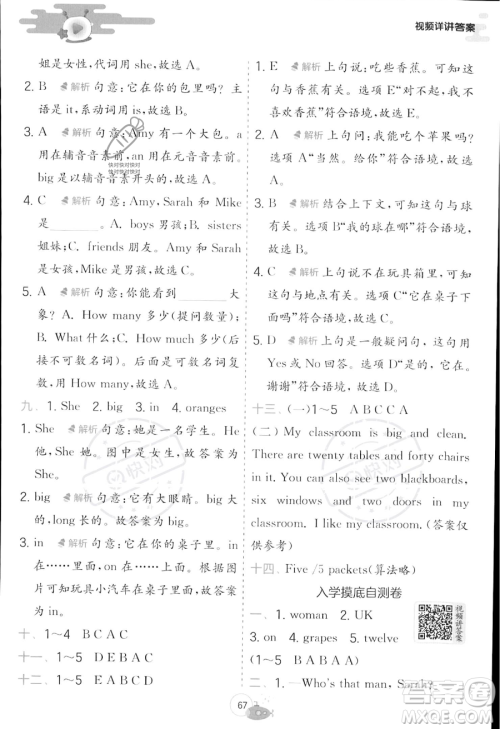 视频详讲答案
姐是女性,代词用 she,故选 A。
2. B 解析 句意:它在你的包里吗?主
语是 it,系动词用 is,故选 B。
3. A 解析 句意:Amy 有一个大包。a
用在辅音音素前,an 用在元音音素前。
big 是以辅音音素开头的,故选 A。
4. C 解析 句意:Amy、Sarah 和 Mike
是________。A. boys 男孩;B. sisters
姐妹;C. friends 朋友。Amy 和 Sarah
是女孩,Mike 是男孩,故选 C。
5. A 解析 句意:你能看到________大
象? A. How many 多少(提问数量);
B. What 什么;C. How much 多少(后
接不可数名词)。后面是可数名词复
数,用 How many,故选 A。
九、1. She 2. big 3. in 4. oranges
1. She 解析 句意:她是一名学生。He
他,She 她。图中是女生,故答案为
She。
2. big 解析 句意:它有大眼睛。图中
熊猫有大眼睛,故答案为 big。
3. in 解析 句意:它在你的桌子里。
in 在……里,on 在……上。由图片
可知玩具小汽车在桌子里,故答案
为 in。
十、1~4 BCAC
十一、1~5 DEBAC
十二、1~5 EABCD
1. E 解析 上句说:吃些香蕉。可知此
句与香蕉有关。选项 E“对不起,我
不喜欢香蕉”符合语境,故选 E。
2. A 解析 上句问:我能用苹果吗?选
项 A“当然。给你”符合语境,故
选 A。
3. B 解析 结合上下文,可知此句与球
有关。选项 B“我的球在哪”符合语
境,故选 B。
4. C 解析 上句说不在玩具箱里,可知
此句与地点有关。选项 C“它在桌子下
面吗”符合语境,故选 C。
5. D 解析 上句是一般疑问句,应用
Yes 或 No 回答。选项 D“是的,它在。
谢谢”符合语境,故选 D。
十三、(一)1~5 ABCCA
(二) My classroom is big and clean.
There are twenty tables and forty chairs
in it. You can see two blackboards,
six windows and two doors in my
classroom. I like my classroom. (答案仅
供参考)
十四、Five /5 packets(算法略)
入学摸底自测卷
一、1. woman 2. UK
3. on 4. grapes 5. twelve
(二)1~5 BADCA
二、1—Who's that man, Sarah?
视频讲答案
67